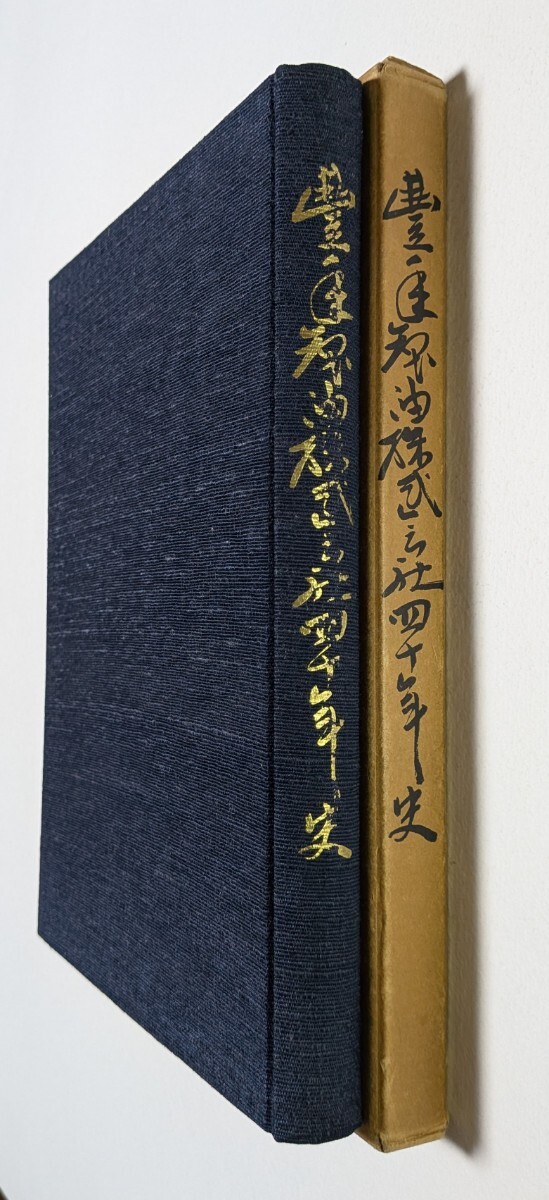 豐年製油株式会社四十年史
豐年製油株式会社四十年史